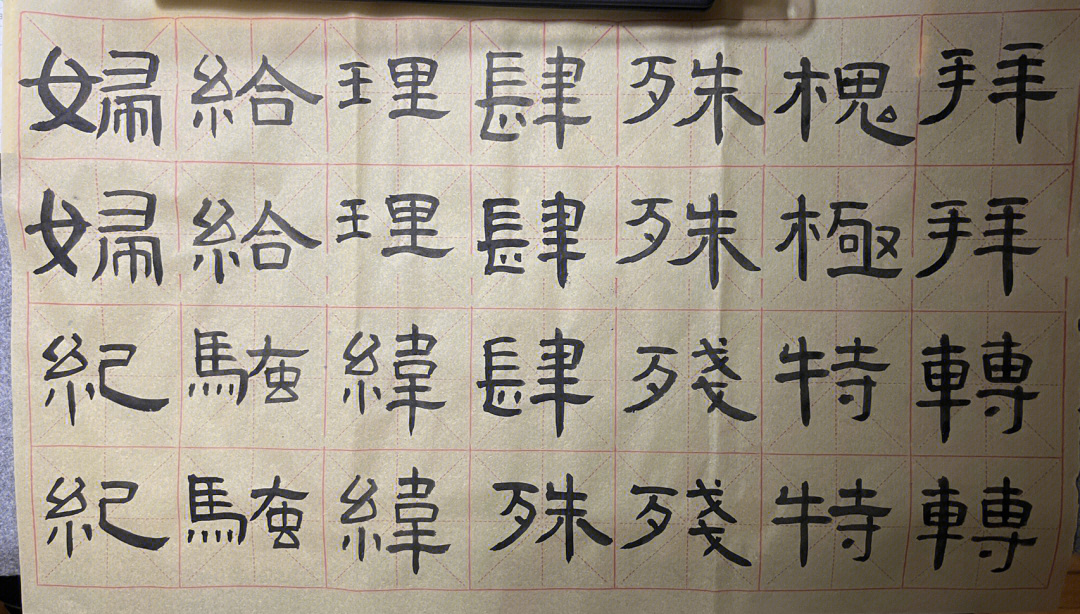 拜拜轉轉
槐極特特
殊殊殘殘
肆肆肆殊
理理緯緯
給給
婦婦紀紀